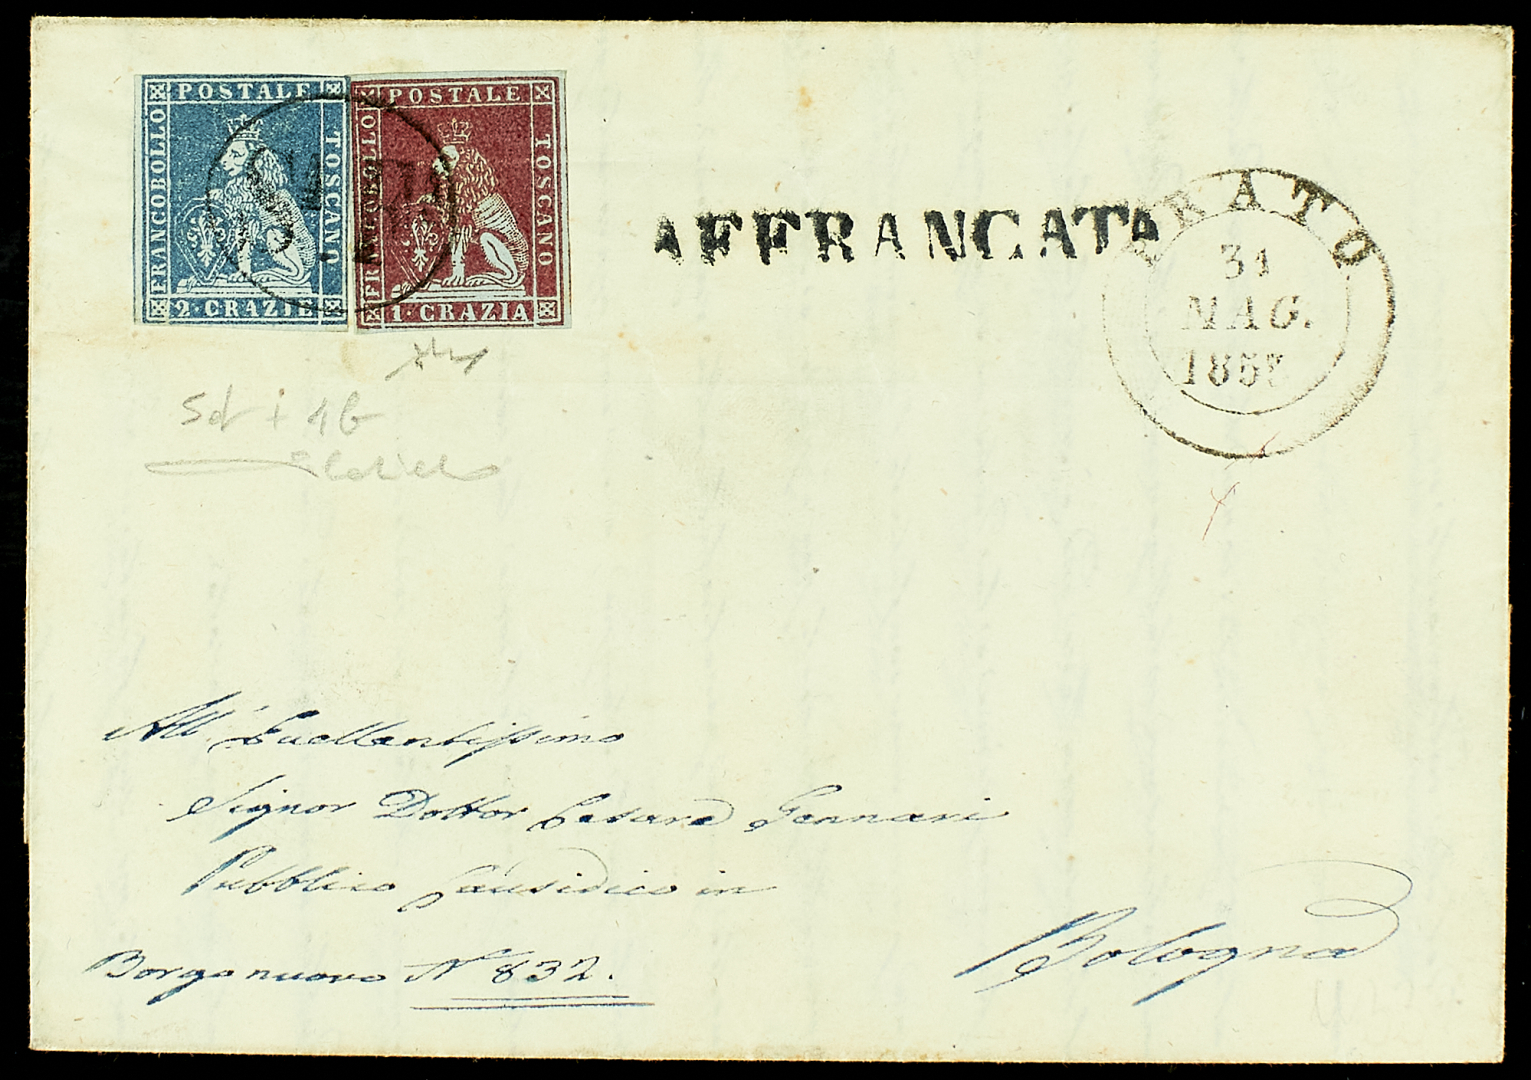 POSTALE
FRANCOBOLLO
TOSCANO
2·CRAZIE
POSTALE
FRANCOBOLLO
TOSCANO
1·CRAZIA
AFFRANCATA
PRATO
31
MAG.
5d + 4b
All' Eccellentissimo
Signor Dottor Cesare Gennari
Pubblico Causidico in
Bologna
Borgo nuovo N° 832.